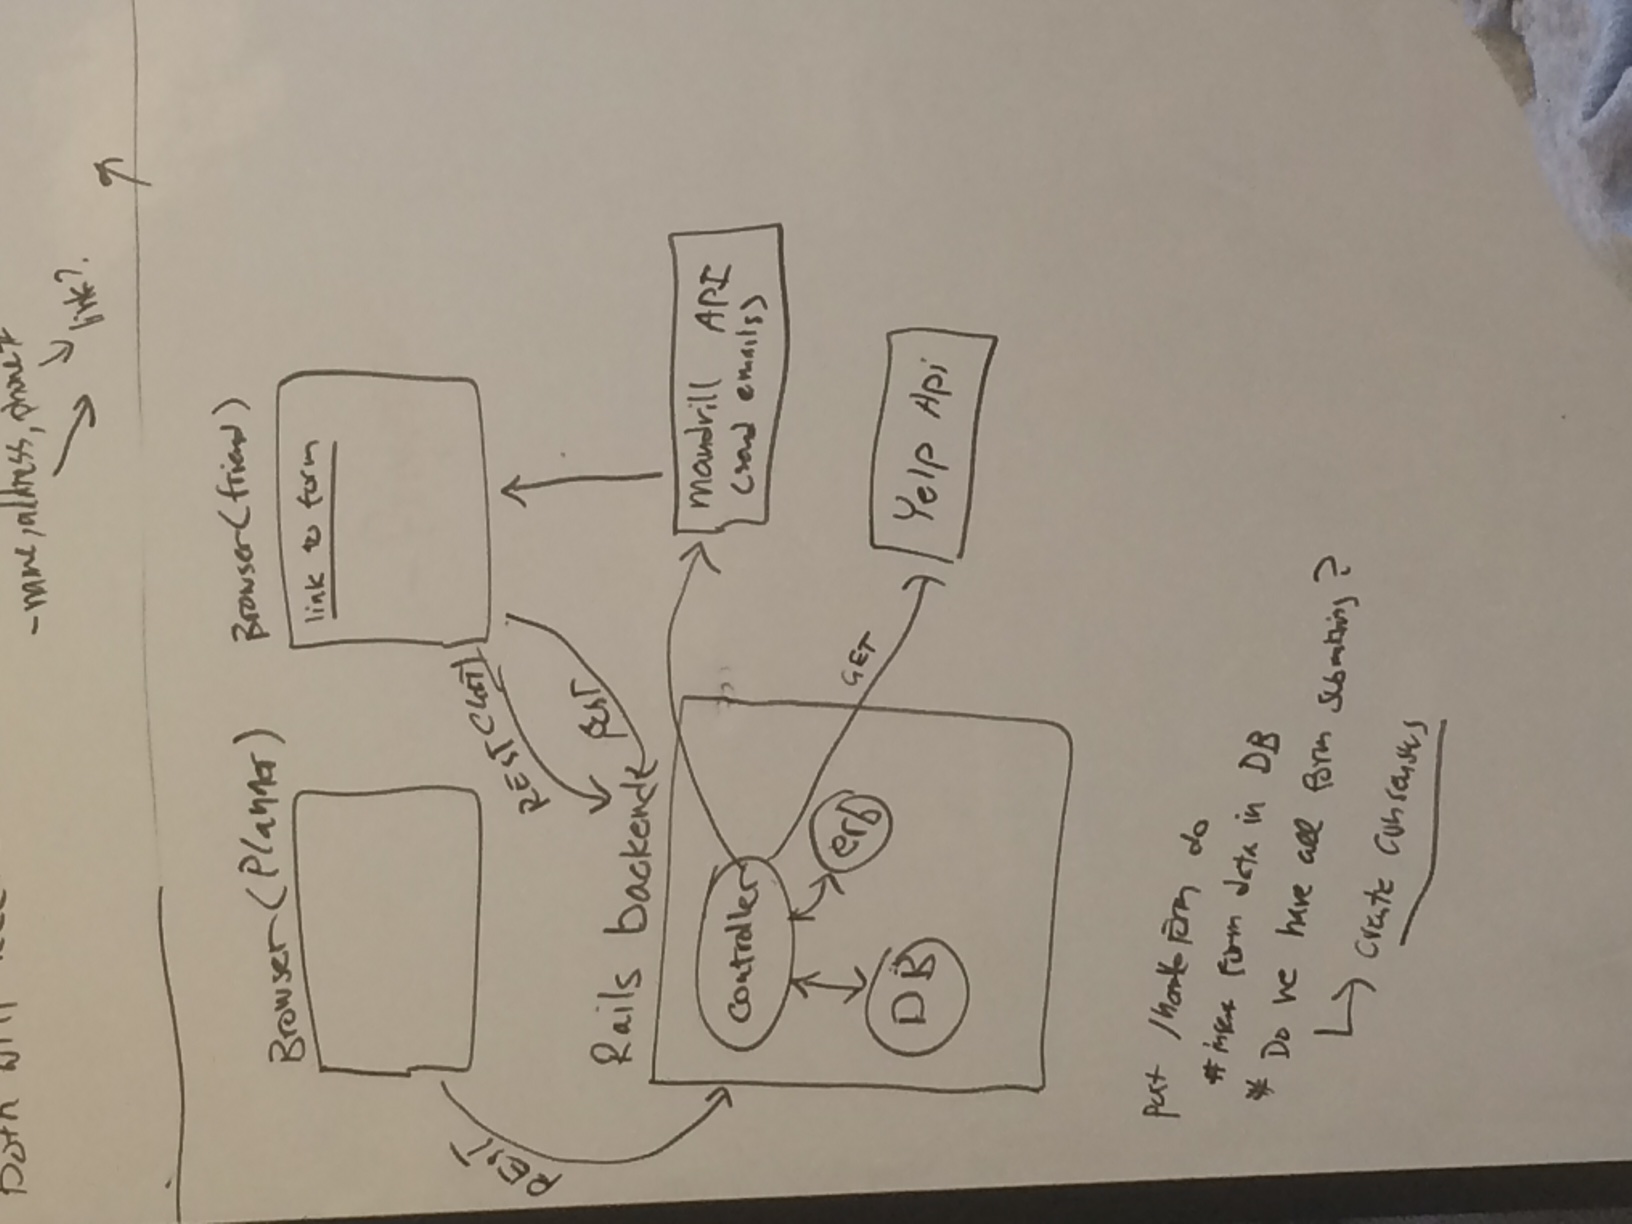 Both will
- name, address, phone #
link?
Browser (Planner)
Browser (friend)
link to form
REST
REST (GET)
POST
Rails backend
controller
mandrill API
(send emails)
erb
DB
GET
Yelp Api
post / form do
# insert form data in DB
* Do we have all form submitting?
create consensus